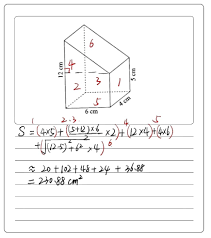 6
4
12 cm
2
3
1
5 cm
5
4 cm
6 cm
1 2·3 4 5
S = (4×5) + ((5+12)×6/2 ×2) + (12×4) + (4×6)
+ (√((12-5)²+6²) ×4) 6
≈ 20 + 102 + 48 + 24 + 36.88
= 230.88 cm²